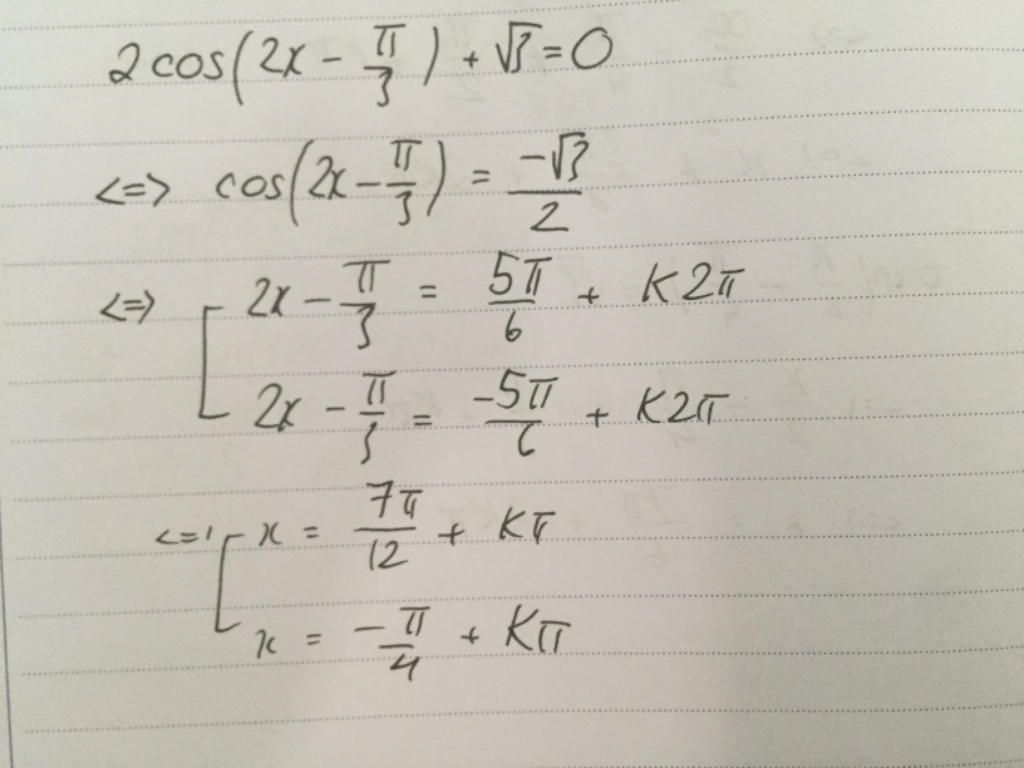 2cos(2x - π/3) + √3 = 0
<=> cos(2x - π/3) = -√3/2
<=> [ 2x - π/3 = 5π/6 + K2π
2x - π/3 = -5π/6 + K2π
<=> [ x = 7π/12 + Kπ
x = -π/4 + Kπ